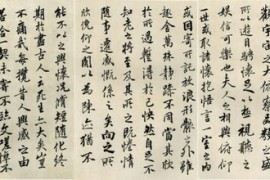 所以遊目騁懷足以極視聽之
娛信可樂也夫人之相與俯仰
一世或取諸懷抱悟言一室之內
或因寄所託放浪形骸之外雖
趣舍萬殊靜躁不同當其欣
於所遇暫得於己快然自足不
知老之將至及其所之既惓情
隨事遷感慨係之矣向之所
欣俛仰之間以為陳迹猶不
能不以之興懷況脩短隨化終
期於盡古人云死生亦大矣豈
不痛哉每攬昔人興感之由
若合一契未嘗不臨文嗟悼不